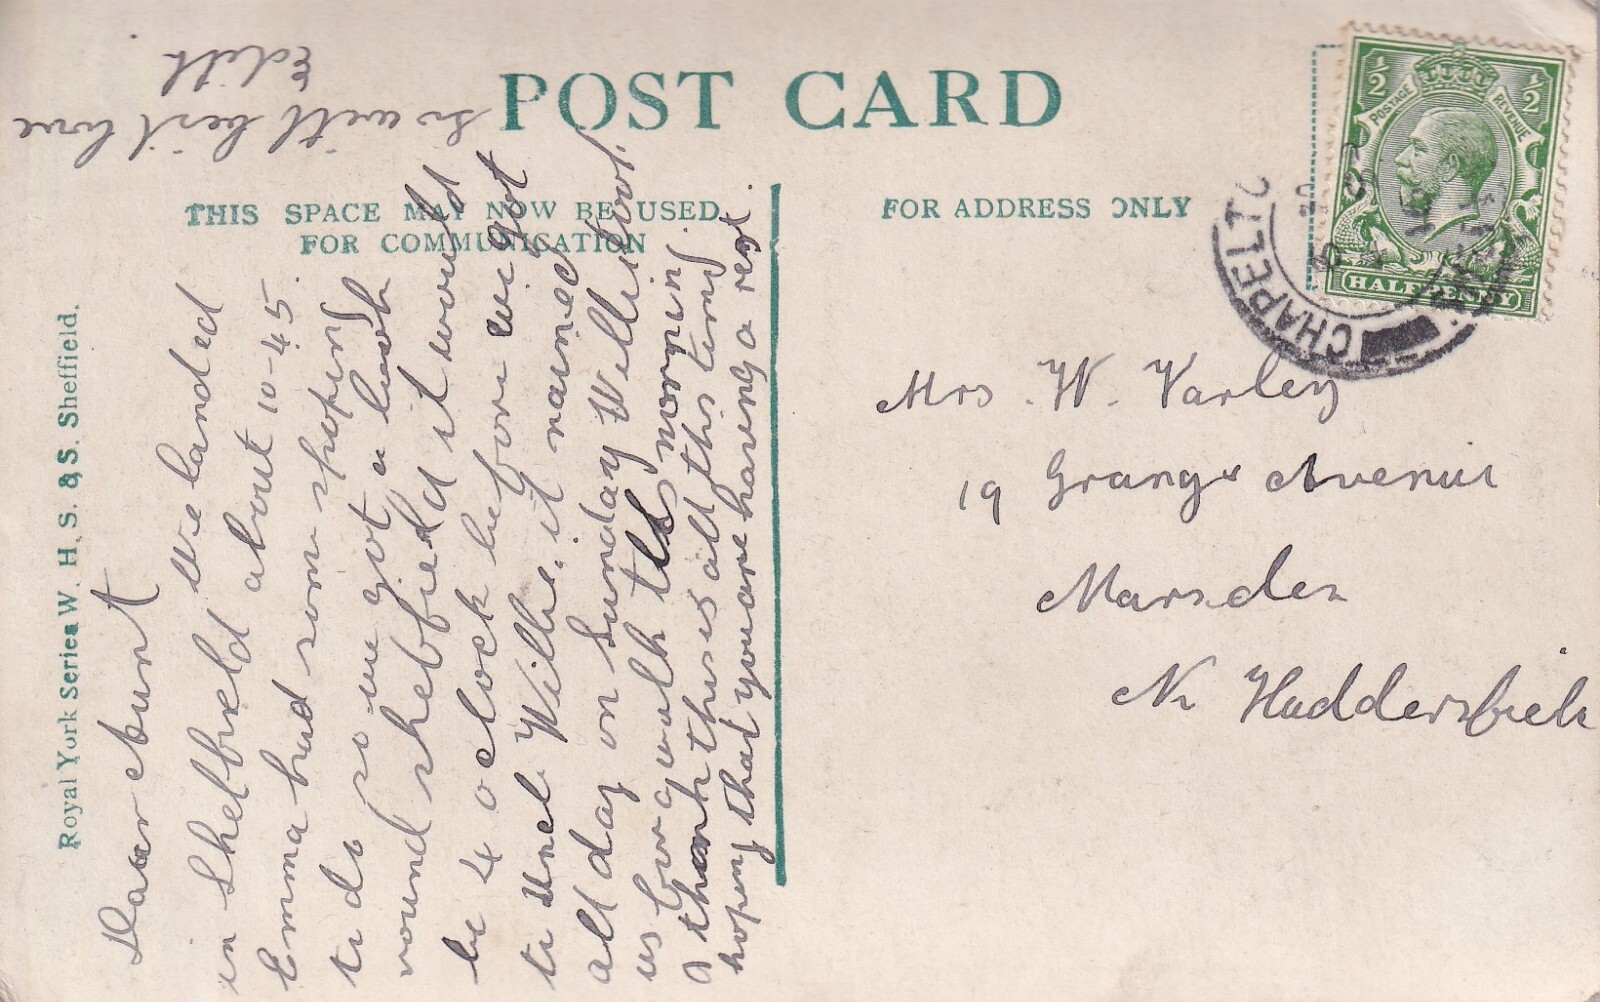 POST CARD
THIS SPACE MAY NOW BE USED
FOR COMMUNICATION
FOR ADDRESS ONLY
Royal York Series W. H. S. & S. Sheffield.
Dear Aunt
we landed
in Sheffield about 10-45
Emma had some shoping
to do so we got a look
round sheffield it would
be 4 o clock before we got
to Uncl Willie. it rained
all day on Sunday Willi took
us for a walk this mornin
I think this is all this time
hoping that you are having a rest
so with best love
Edith
Mrs. W. Varley
19 Grange Avenue
Marsden
Nr Huddersfield
½ ½
POSTAGE REVENUE
HALFPENNY
CHAPELTO